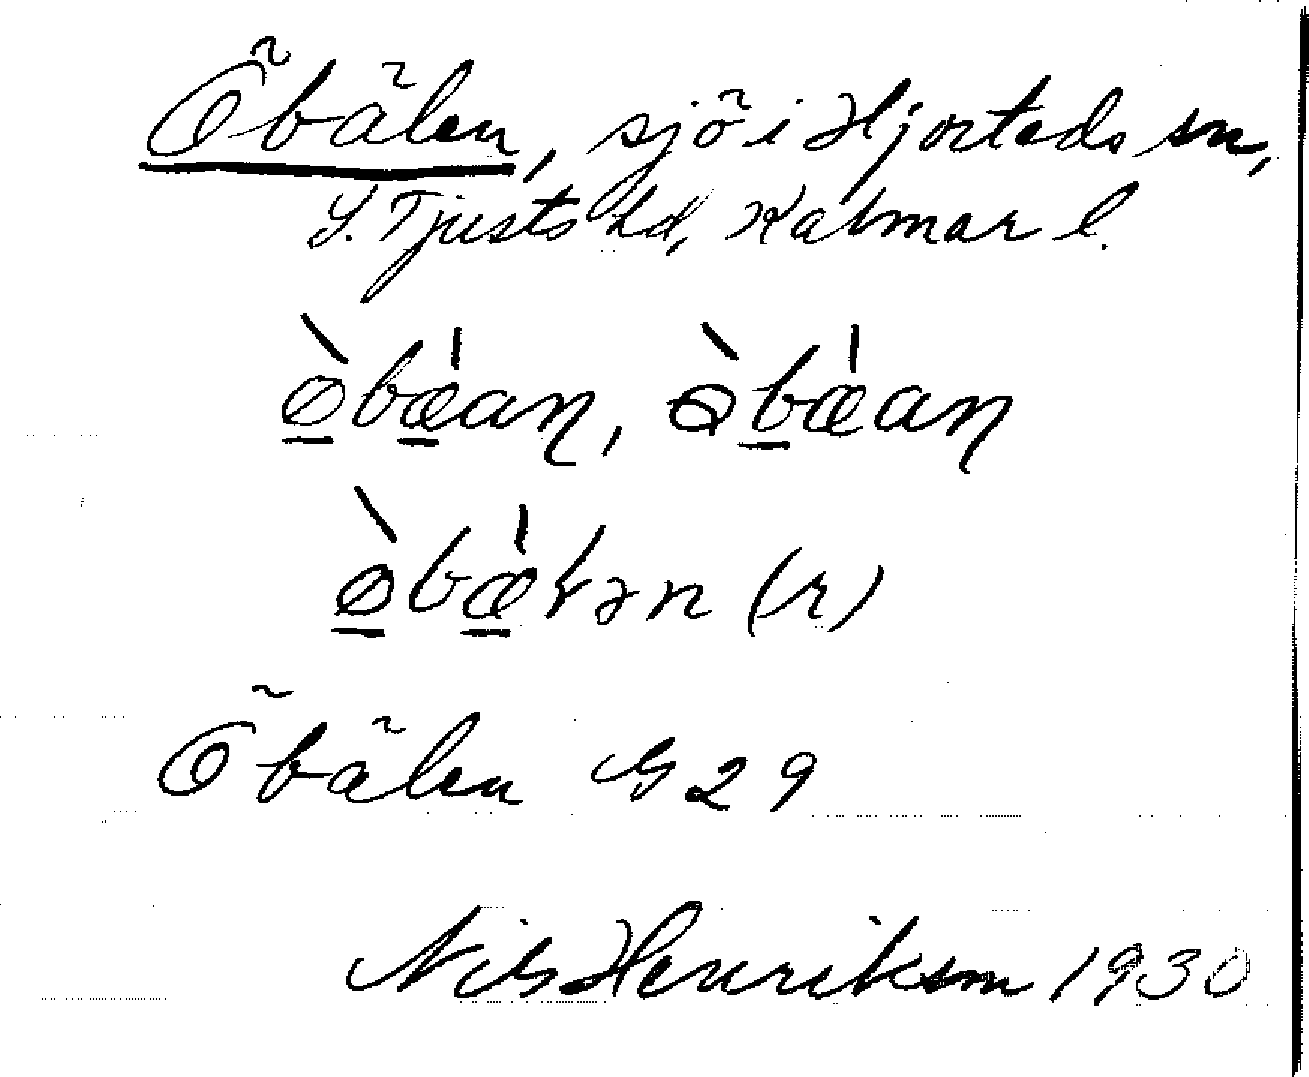 Öbälen, sjö i Hjorteds sn,
S. Tjusts hd, Kalmar l.
ø̀bæ̀an, ò̀bæ̀an
ø̀bæ̀ɫən (r)
Öbälen G 29
Nils Henrikson 1930